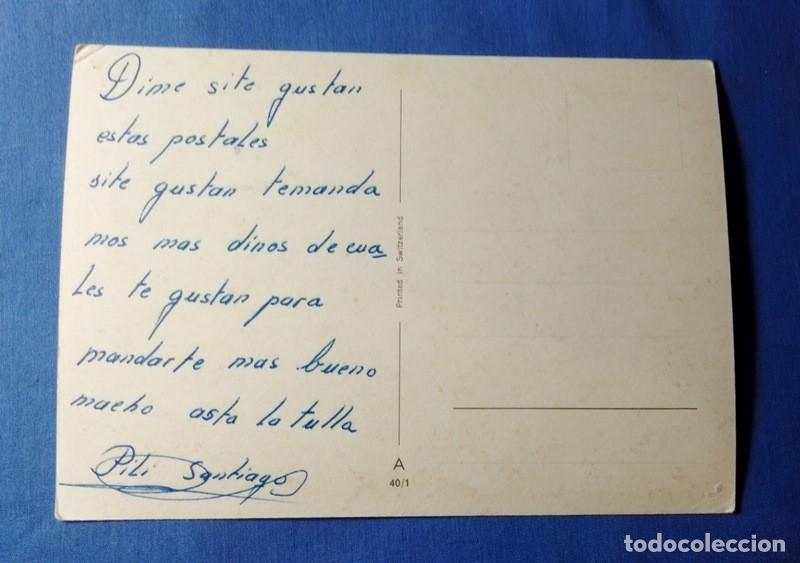 Dime site gustan
estas postales
site gustan temanda
mos mas dinos de cua-
les te gustan para
mandarte mas bueno
macho asta la tulla
Pili Santiago
Printed in Switzerland
A
40/1
todocoleccion
todocoleccion.net